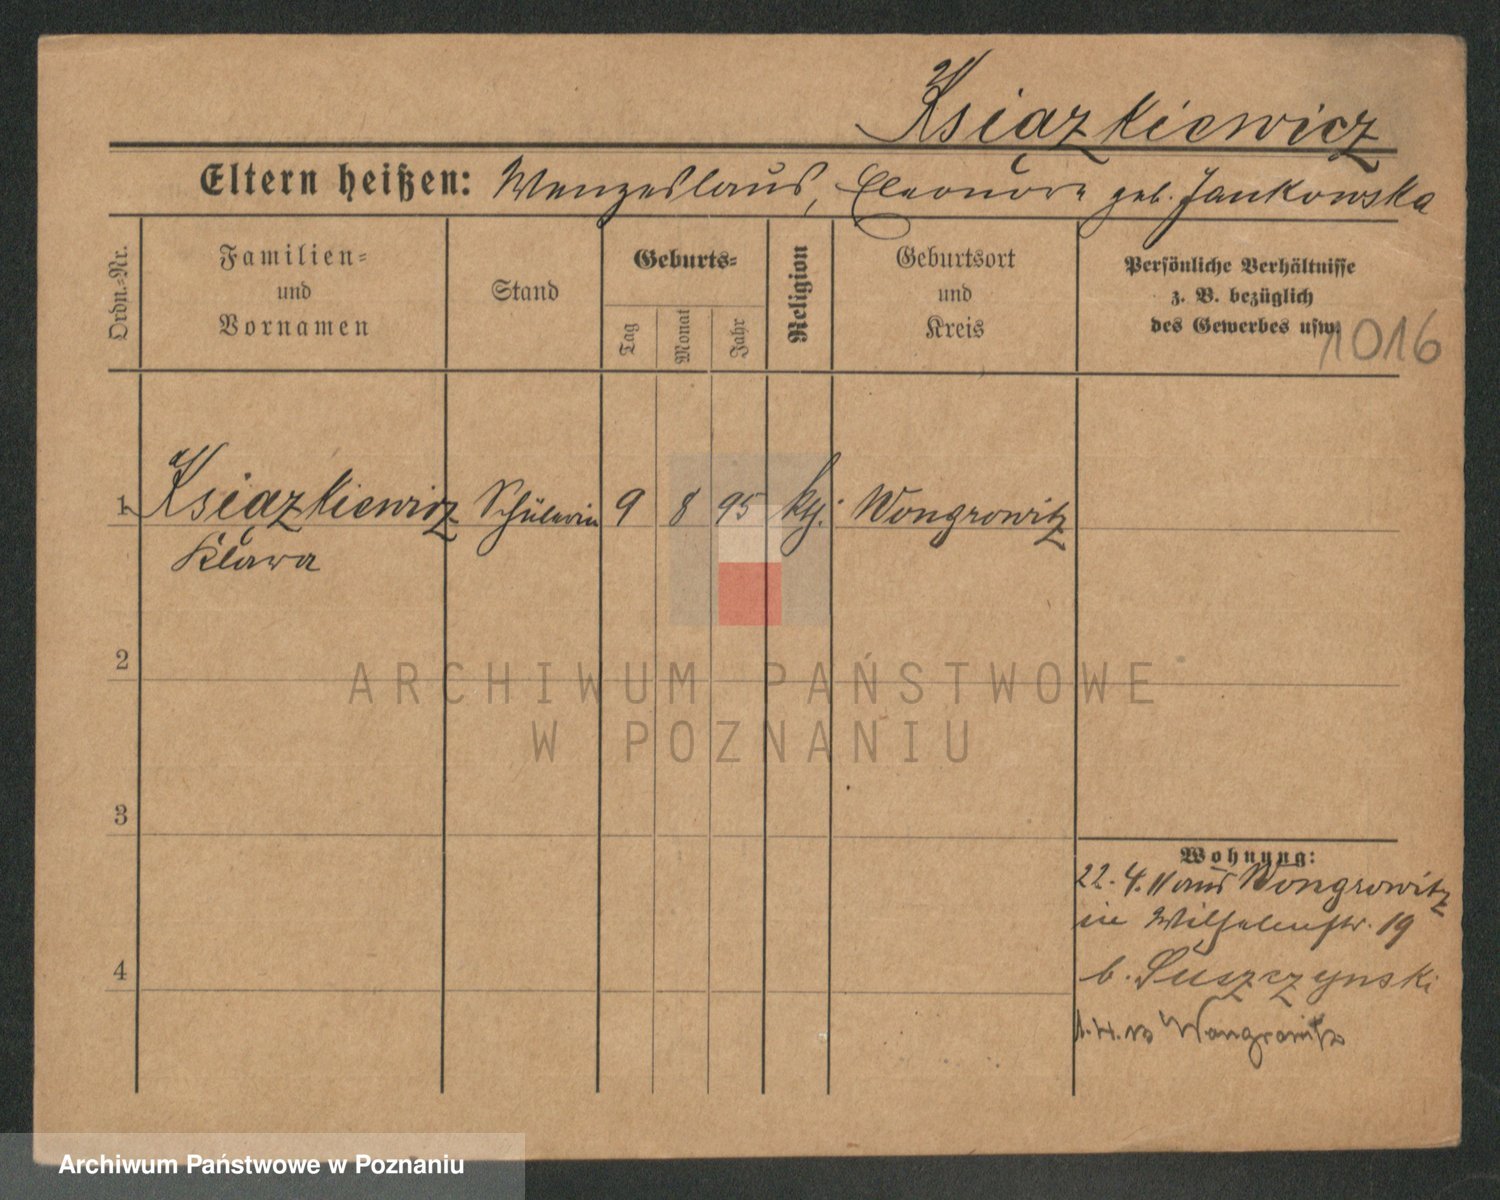 Książkiewicz
Eltern heißen: Wenzeslaus, Eleonore geb. Jankowska
Ordn.-Nr.
Familien-
und
Vornamen
Stand
Geburts-
Tag
Monat
Jahr
Religion
Geburtsort
und
Kreis
Persönliche Verhältnisse
z. B. bezüglich
des Gewerbes usw.
1016
1 Książkiewicz Schülerin 9 8 95 kth. Wongrowitz
Klara
2
ARCHIWUM PAŃSTWOWE
W POZNANIU
3
Wohnung:
22. 4. 11 aus Wongrowitz
in Wilhelmstr. 19
b. Suszczynski
4
1. 4. Wongrowitz
Archiwum Państwowe w Poznaniu